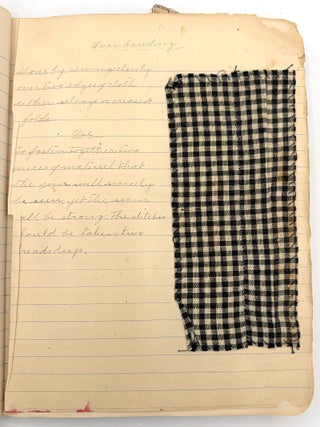 Over handing
Done by sewing closely
over two edges of cloth
either selvage or creased
folds.
Use
To fasten together two
pieces of material that
the join will scarcely
be seen, yet the seam
will be strong. The stitches
should be taken two
threads deep.